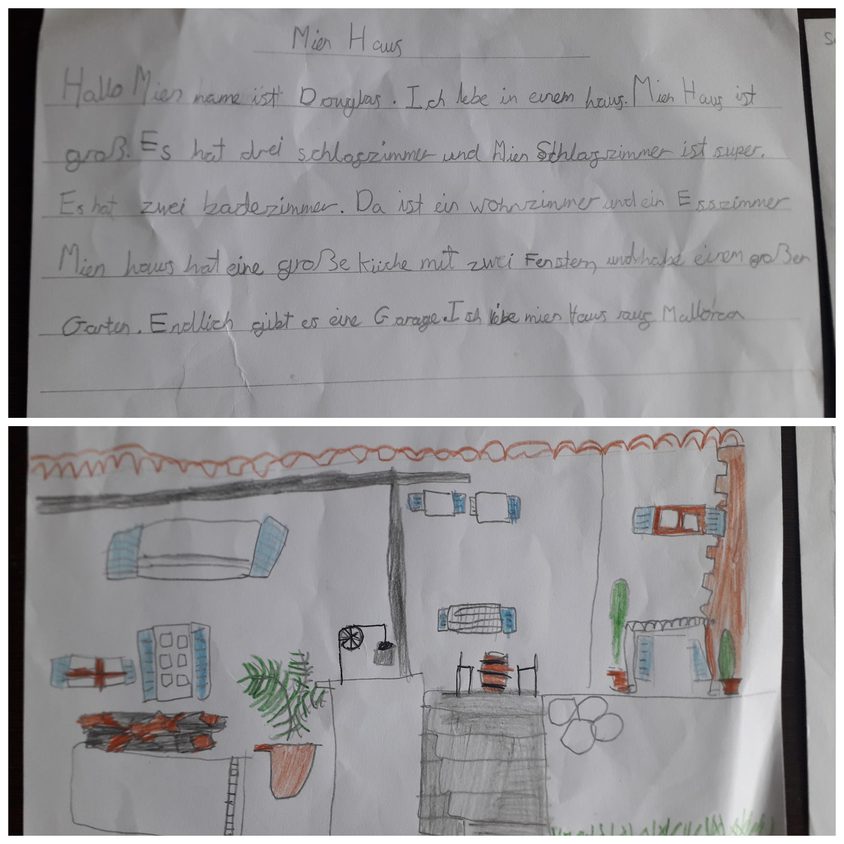 Mien Haus
Hallo Mien name ist Douglas. Ich lebe in einem haus. Mien Haus ist
groß. Es hat drei schlagzimmer und Mien Schlagzimmer ist super.
Es hat zwei badezimmer. Da ist ein wohnzimmer und ein Esszimmer
Mien haus hat eine große küche mit zwei Fenstern und habe einem großen
Garten. Endlich gibt es eine Garage. Ich liebe mien Haus Mallorca